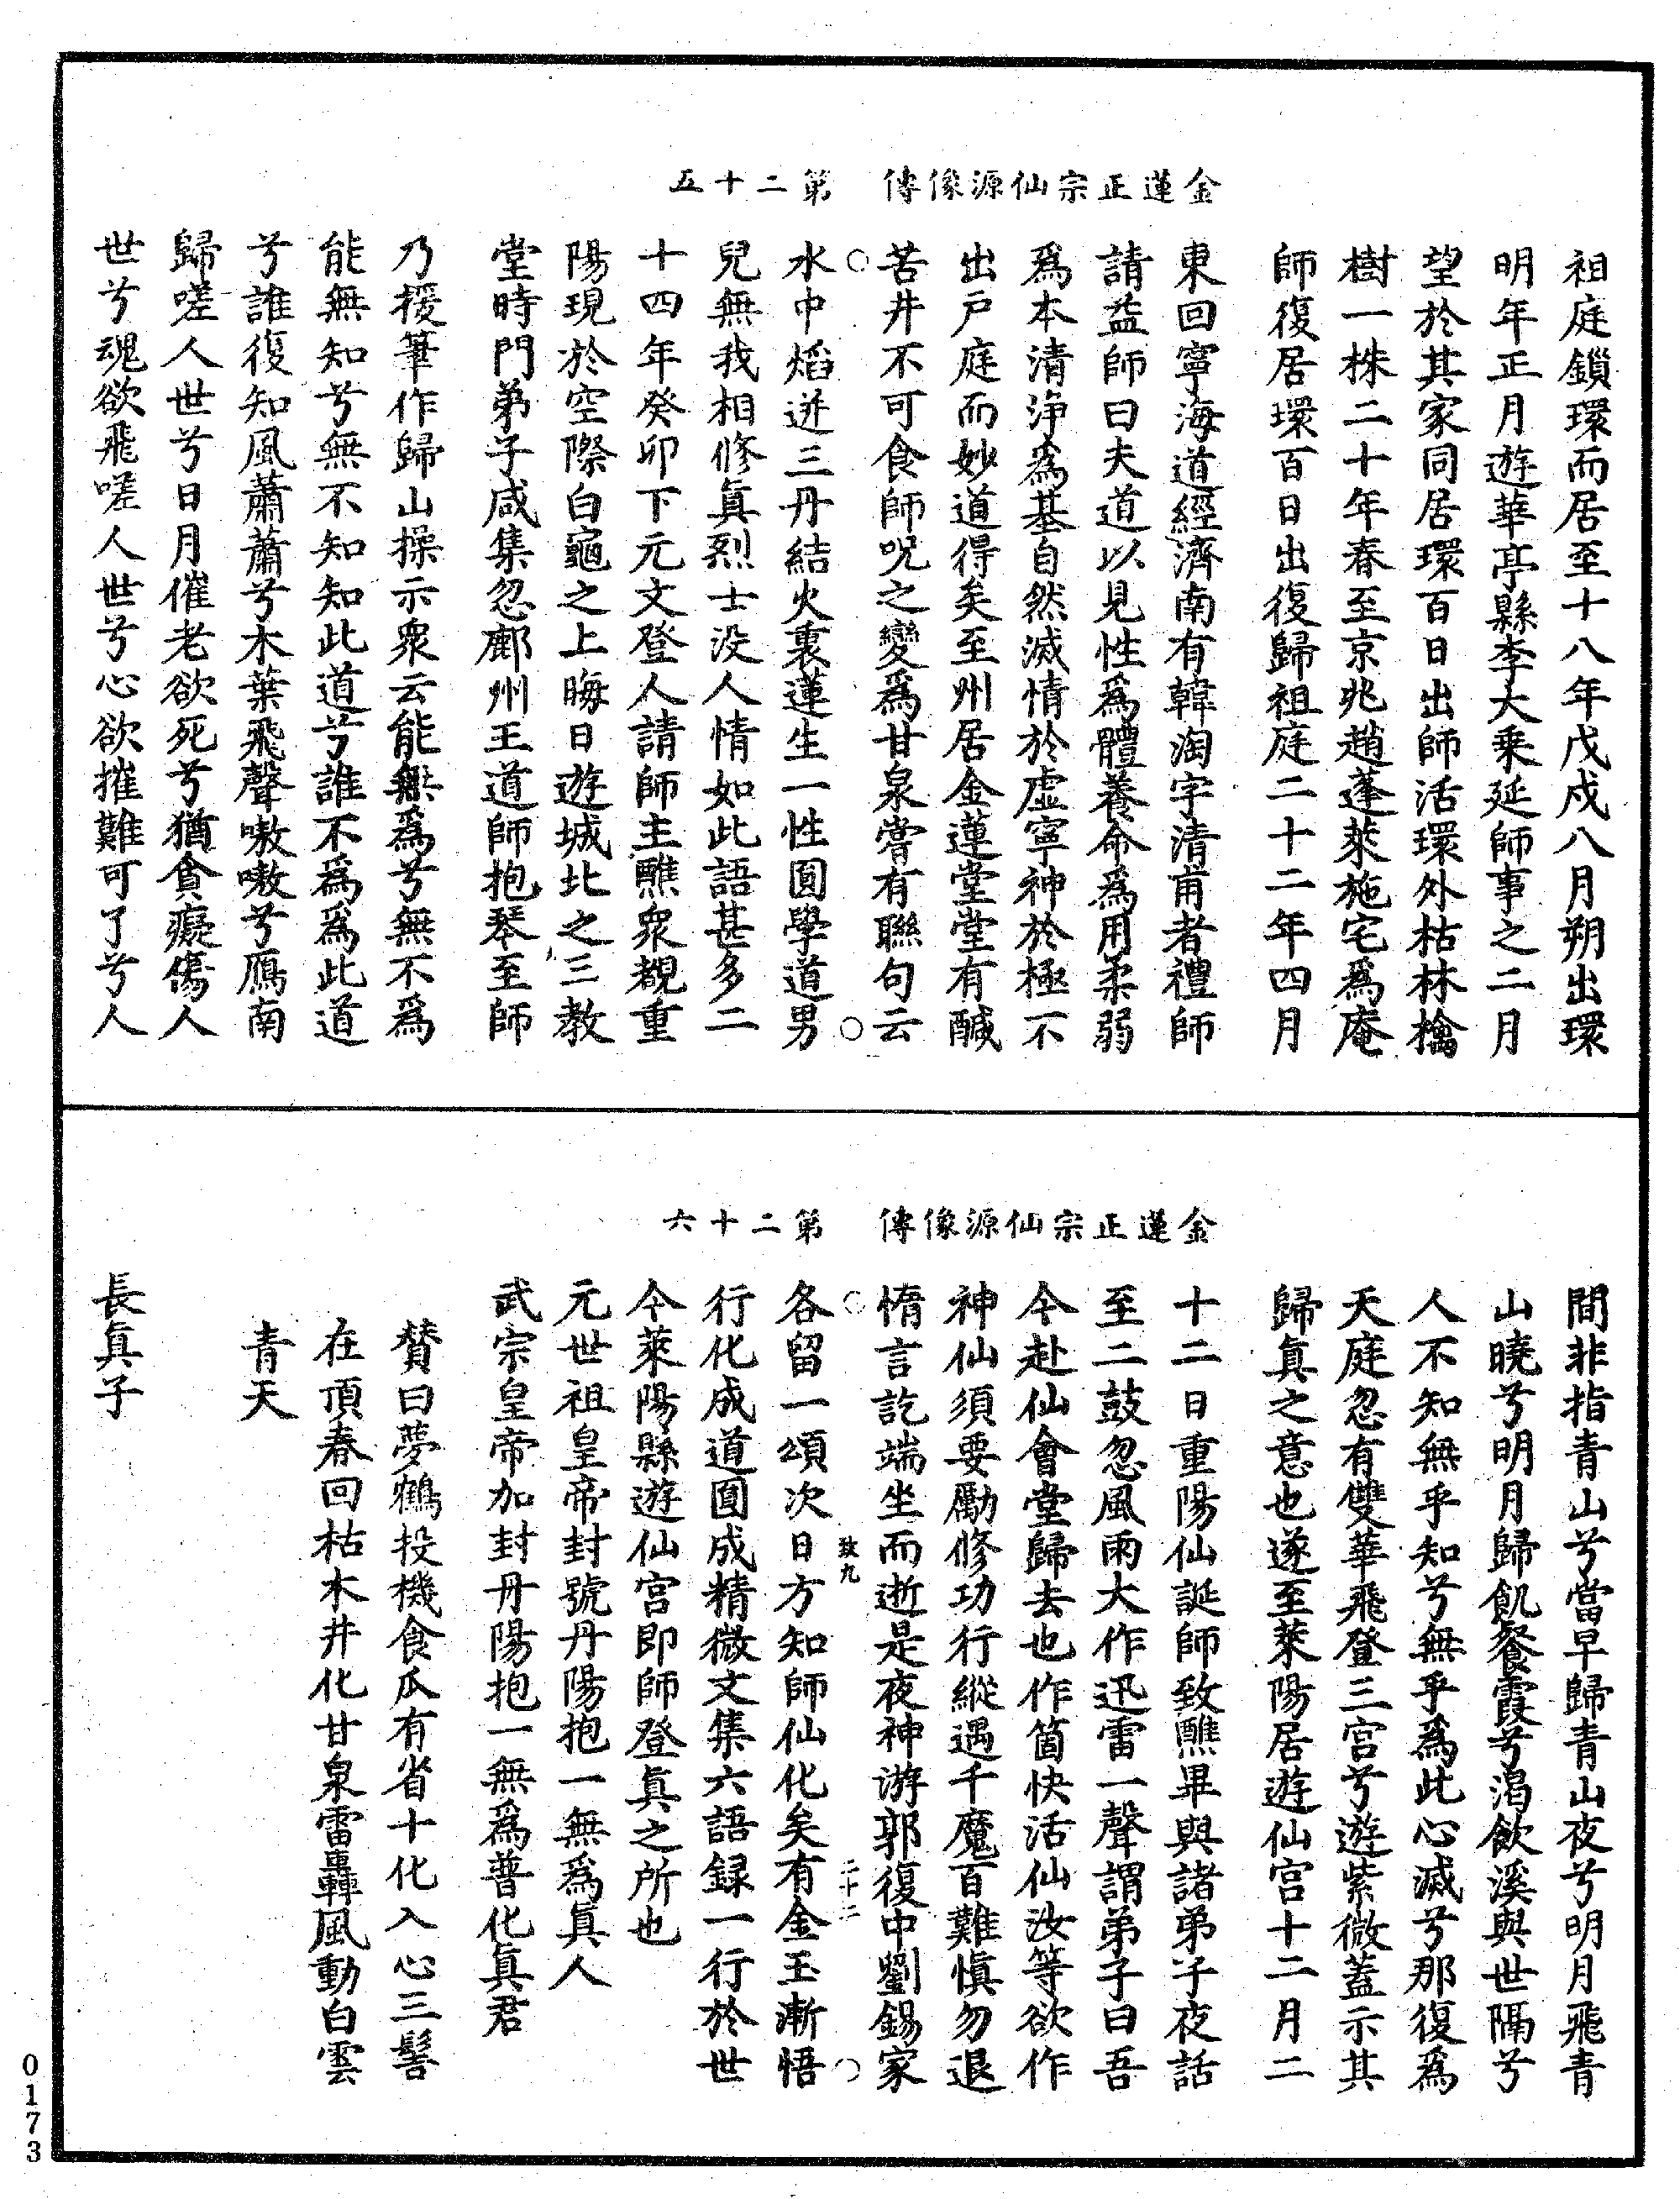 金蓮正宗仙源像傳　第二十五
祖庭鎖環而居至十八年戊戌八月朔出環
明年正月遊華亭縣李大乘延師事之二月
望於其家同居環百日出師活環外枯林檎
樹一株二十年春至京兆趙蓬萊施宅爲庵
師復居環百日出復歸祖庭二十二年四月
東回寧海道經濟南有韓淘字清甫者禮師
請益師曰夫道以見性爲體養命爲用柔弱
爲本清淨爲基自然滅情於虛寧神於極不
出戶庭而妙道得矣至州居金蓮堂堂有醎
苦井不可食師呪之變爲甘泉嘗有聯句云
水中焰迸三丹結火裏蓮生一性圓學道男
兒無我相修眞烈士没人情如此語甚多二
十四年癸卯下元文登人請師主醮衆覩重
陽現於空際白龜之上晦日遊城北之三教
堂時門弟子咸集忽鄜州王道師抱琴至師
乃援筆作歸山操示衆云能無爲兮無不爲
能無知兮無不知知此道兮誰不爲爲此道
兮誰復知風蕭蕭兮木葉飛聲嗷嗷兮鴈南
歸嗟人世兮日月催老欲死兮猶貪癡傷人
世兮魂欲飛嗟人世兮心欲摧難可了兮人
金蓮正宗仙源像傳　第二十六
間非指青山兮當早歸青山夜兮明月飛青
山曉兮明月歸飢餐霞兮渴飲溪與世隔兮
人不知無乎知兮無乎爲此心滅兮那復爲
天庭忽有雙華飛登三宮兮遊紫微蓋示其
歸眞之意也遂至萊陽居遊仙宮十二月二
十二日重陽仙誕師致醮畢與諸弟子夜話
至二鼓忽風雨大作迅雷一聲謂弟子曰吾
今赴仙會堂歸去也作箇快活仙汝等欲作
神仙須要勵修功行縱遇千魔百難愼勿退
惰言訖端坐而逝是夜神游郭復中劉錫家
致九　二十二
各留一頌次日方知師仙化矣有金玉漸悟
行化成道圓成精微文集六語録一行於世
今萊陽縣遊仙宮即師登眞之所也
元世祖皇帝封號丹陽抱一無爲眞人
武宗皇帝加封丹陽抱一無爲普化眞君
贊曰夢鶴投機食瓜有省十化入心三髻
在頂春回枯木井化甘泉雷轟風動白雲
青天
長眞子
0173